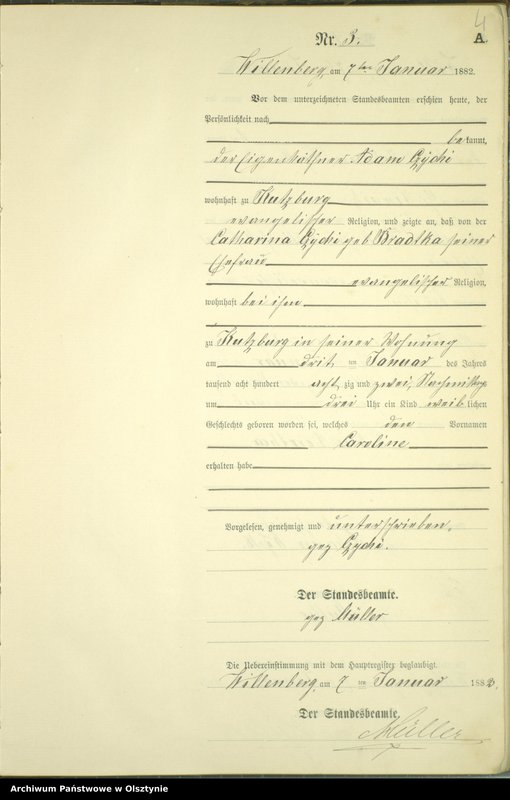 4
Nr. 3.
A.
Willenberg, am 7ten Januar 1882.
Vor dem unterzeichneten Standesbeamten erschien heute, der
Persönlichkeit nach
bekannt,
der Eigenkäthner Adam Czychi
wohnhaft zu Kutzburg
evangelischer Religion, und zeigte an, daß von der
Catharina Czychi geb Bradtka seiner
Ehefrau
evangelischer Religion,
wohnhaft bei ihm
zu Kutzburg in seiner Wohnung
am drit ten Januar des Jahres
tausend acht hundert acht zig und zwei, Nachmittags
um drei Uhr ein Kind weib lichen
Geschlechts geboren worden sei, welches den Vornamen
Caroline
erhalten habe
Vorgelesen, genehmigt und unterschrieben.
gez Czychi.
Der Standesbeamte.
gez Müller
Die Uebereinstimmung mit dem Hauptregister beglaubigt.
Willenberg, am 7 ten Januar 1882,
Der Standesbeamte.
Müller
Archiwum Państwowe w Olsztynie